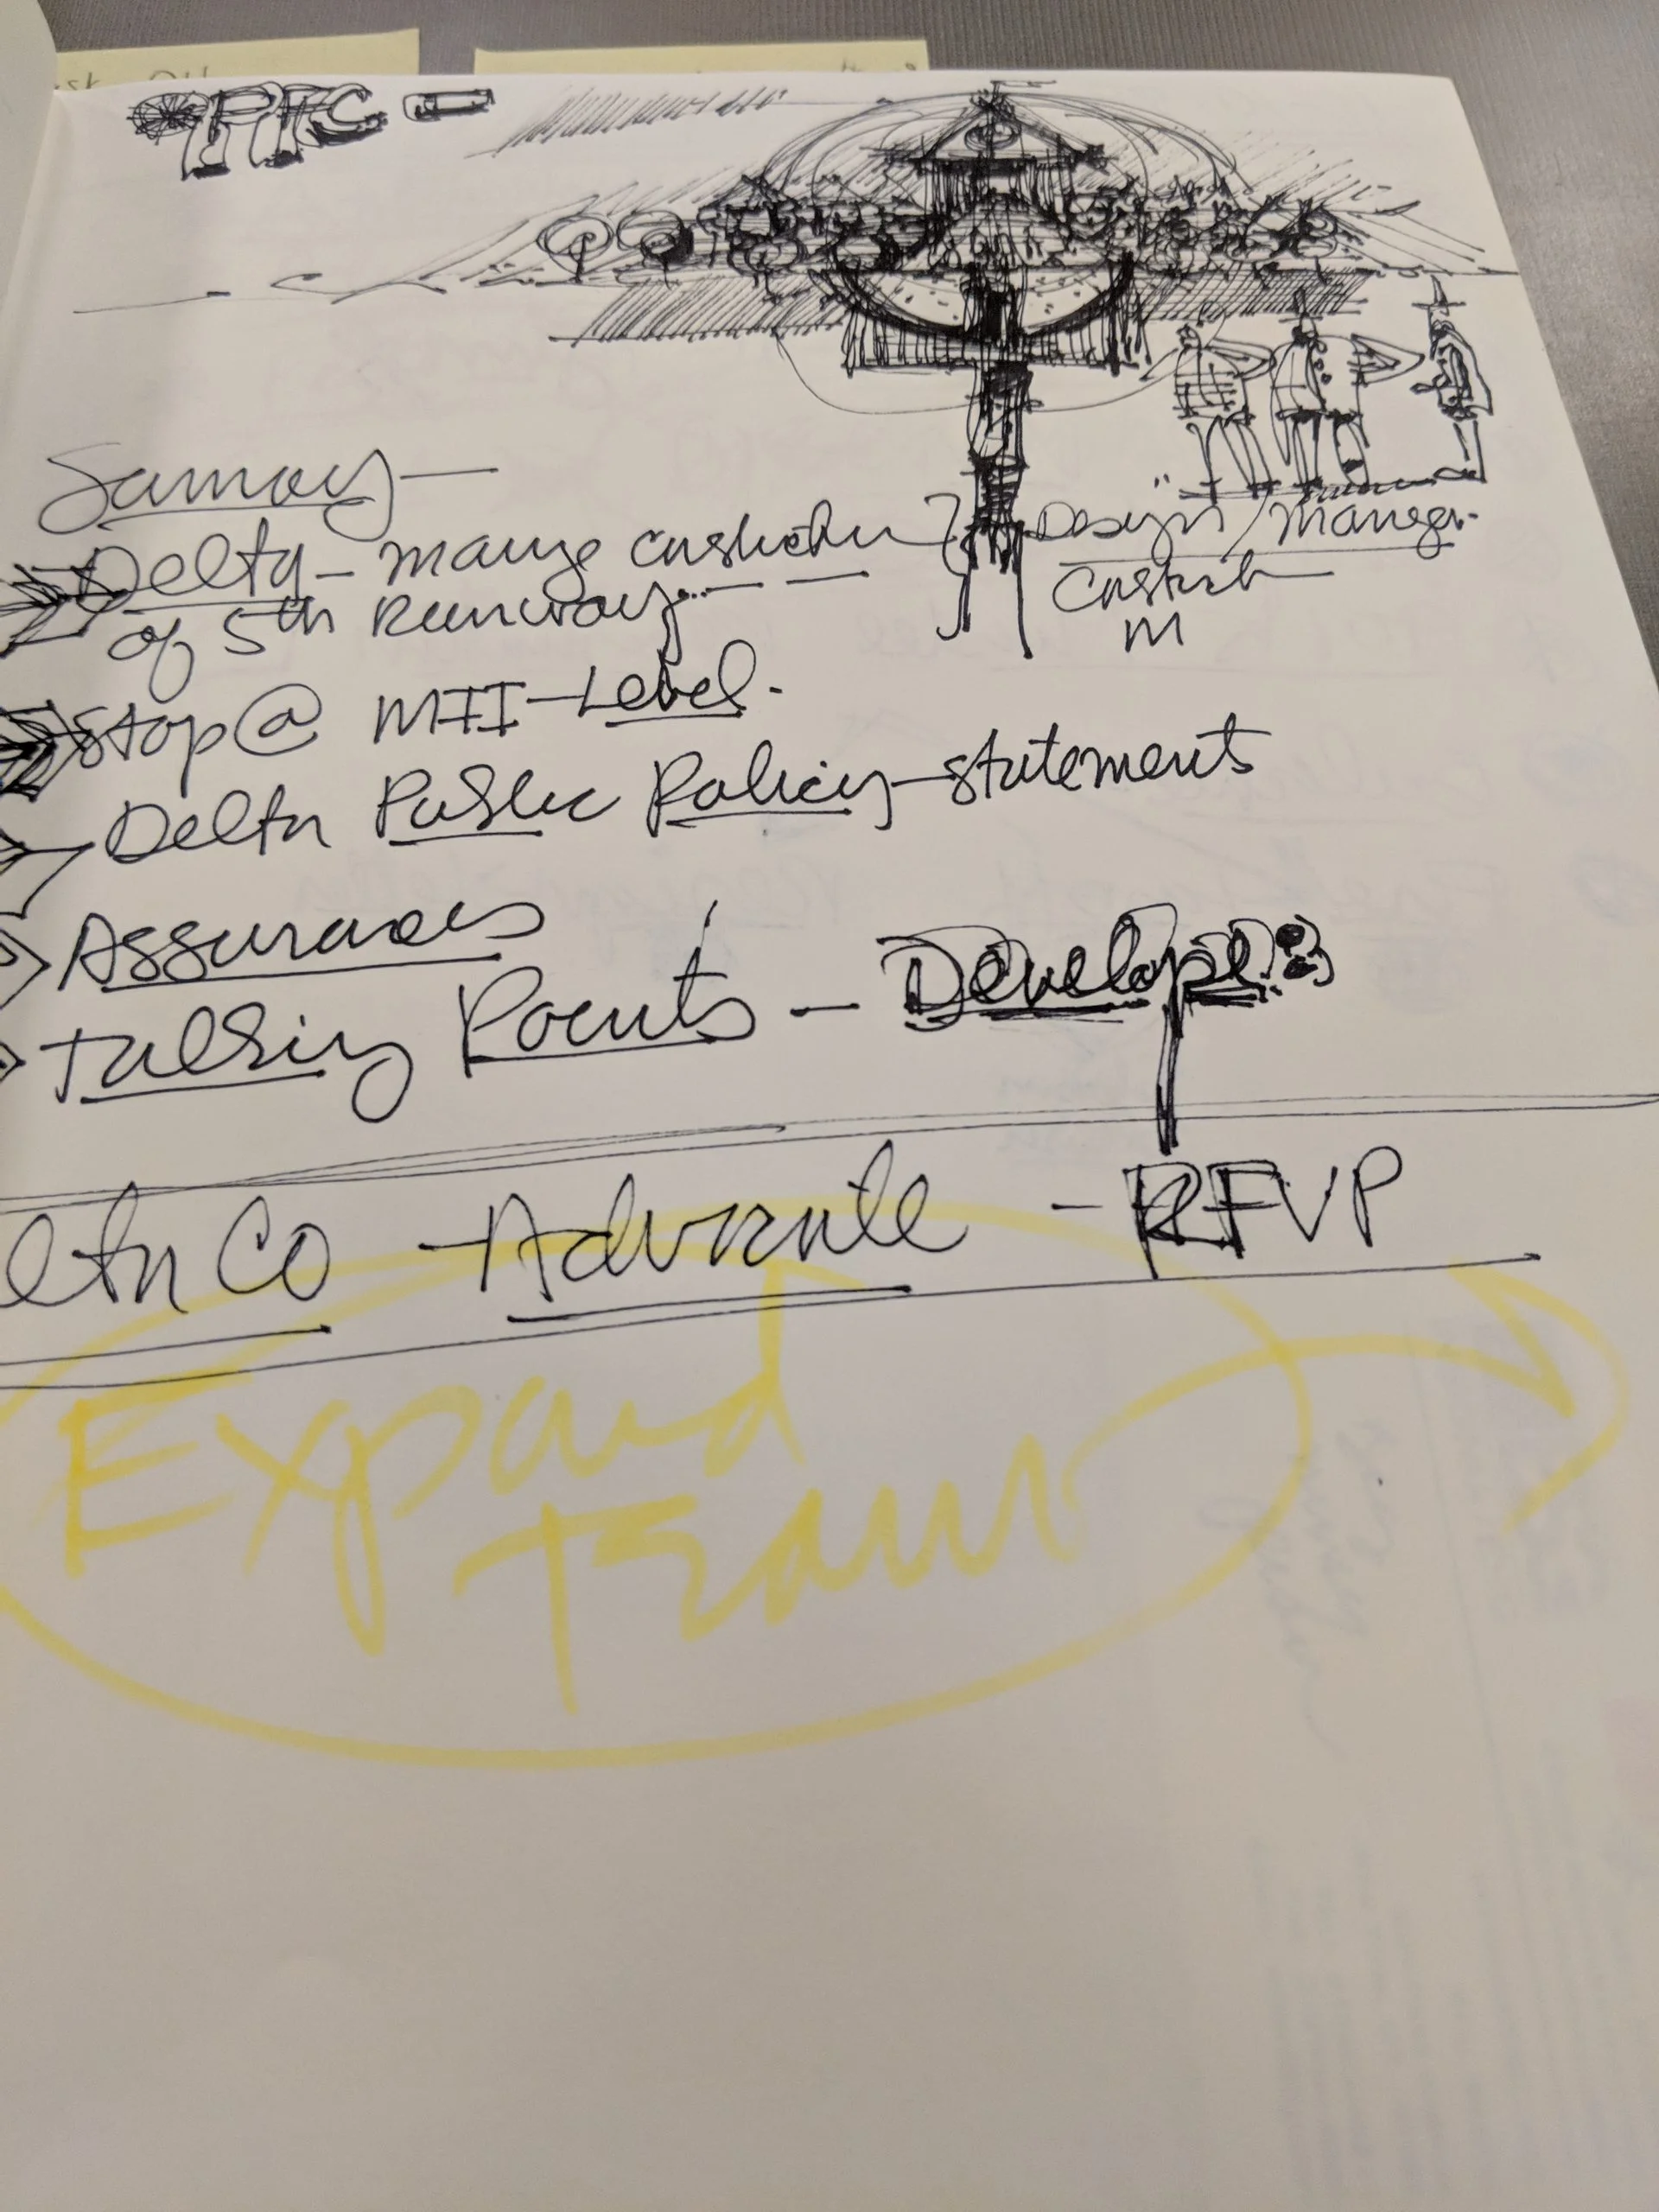 PTC -
Samoy —
Delta - mange
of 5th Runway...
Design / Manager
M
Stop @ MII - Level.
Delta Public Policy - statements
Assurances
Talking Points - Develop
Co - Advocate - RFVP
Expand
Team